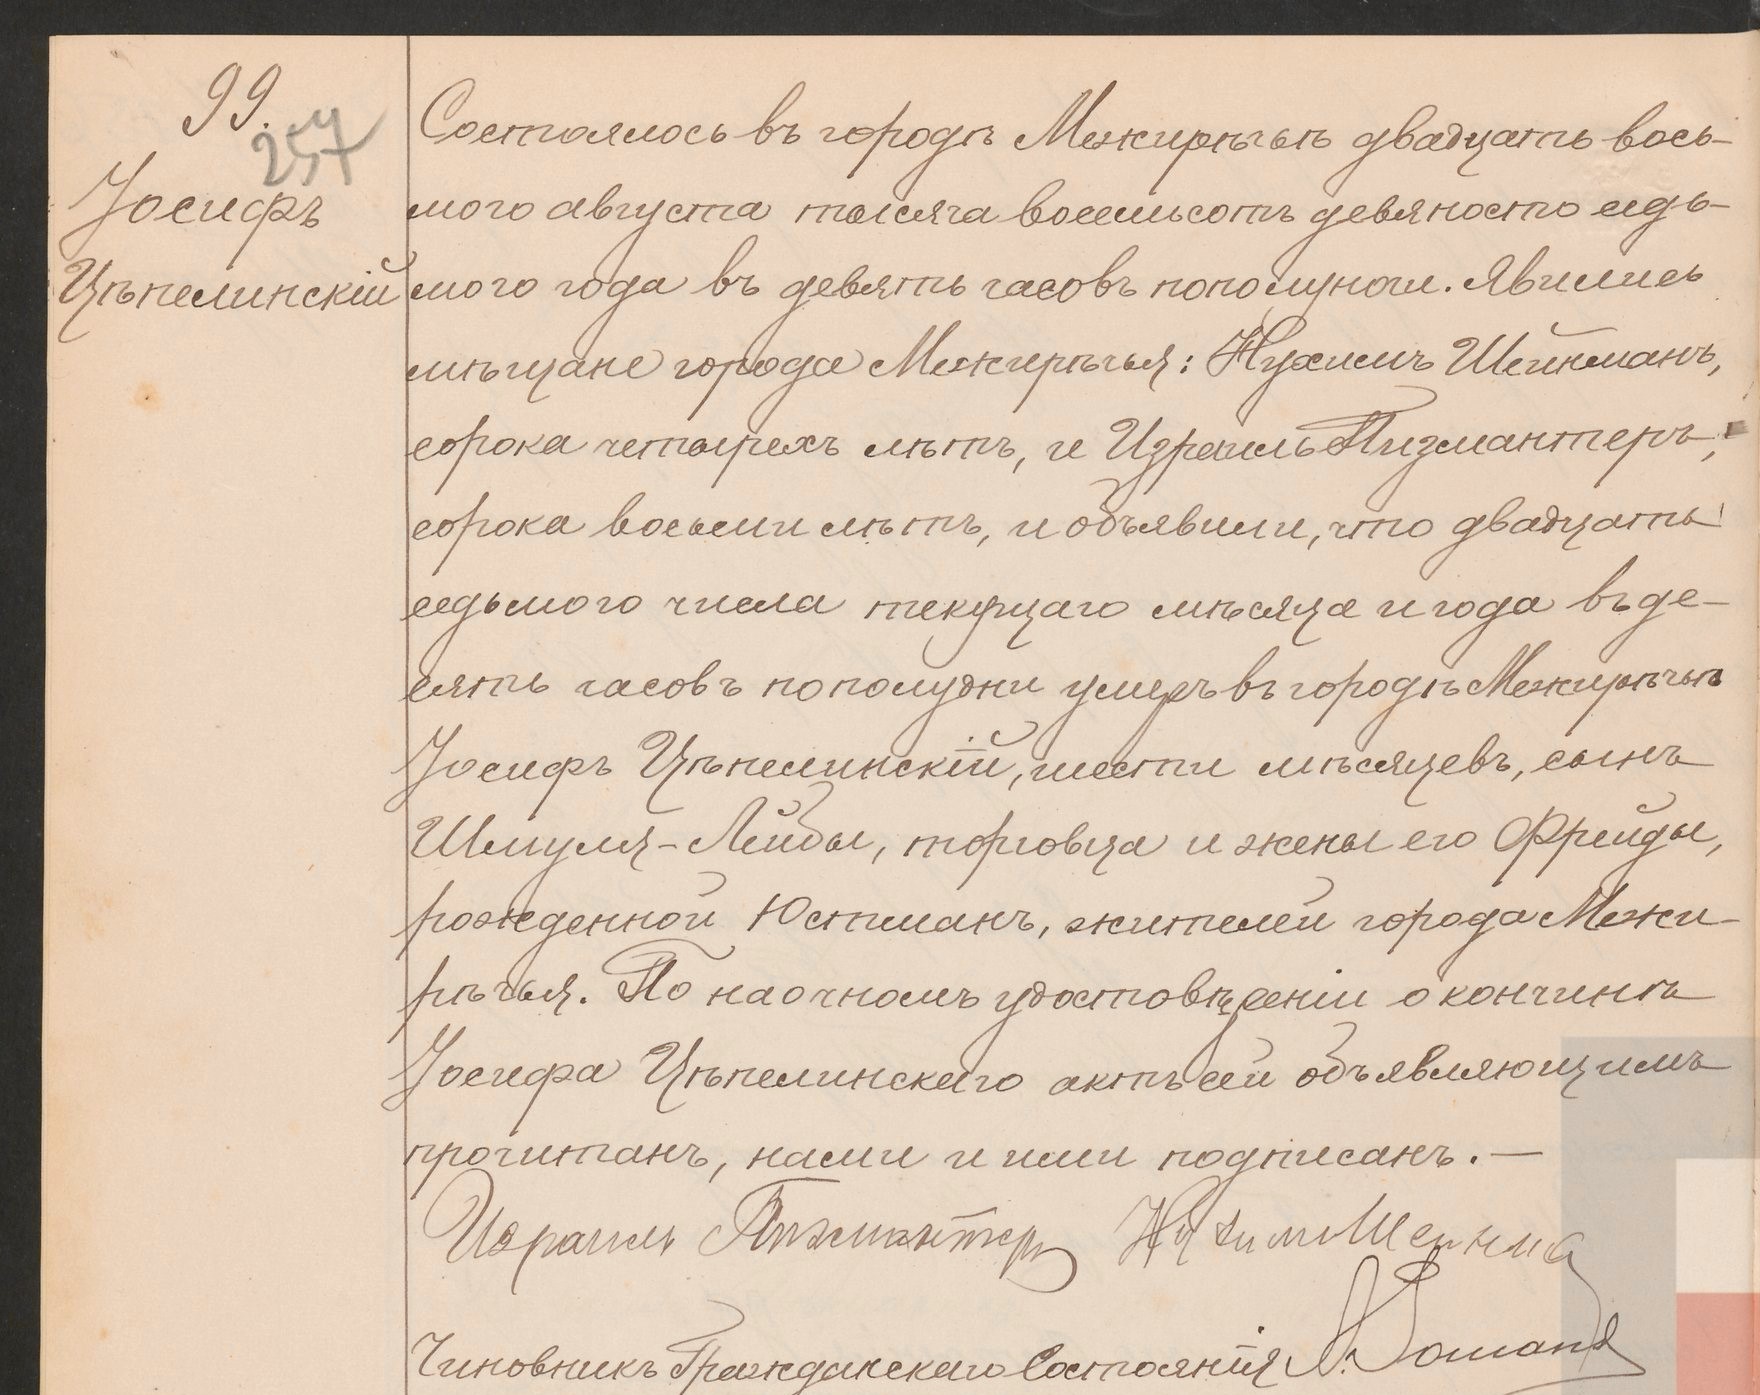 99.
257
Іосифъ
Цѣпелинскій
Состоялось въ городѣ Межирѣчьѣ двадцать вось-
мого августа тысяча восемьсотъ девяносто седь-
мого года въ девять часовъ пополуночи. Явились
мѣщане города Межирѣчья: Нухимъ Шейнманъ,
сорока четырехъ лѣтъ, и Израиль Пизмантеръ,
сорока восьми лѣтъ, и объявили, что двадцать
седьмого числа текущаго мѣсяца и года въ де-
сять часовъ пополудни умеръ въ городѣ Межирѣчьѣ
Іосифъ Цѣпелинскій, шести мѣсяцевъ, сынъ
Шмуля-Лейбы, торговца и жены его Фрейды,
рожденной Юстманъ, жителей города Межи-
рѣчья. По наочномъ удостовѣреніи о кончинѣ
Іосифа Цѣпелинскаго актъ сей объявляющимъ
прочитанъ, нами и ими подписанъ.—
Израиль Пизмантеръ Нухим Шеинма
Чиновникъ Гражданскаго Состоянія